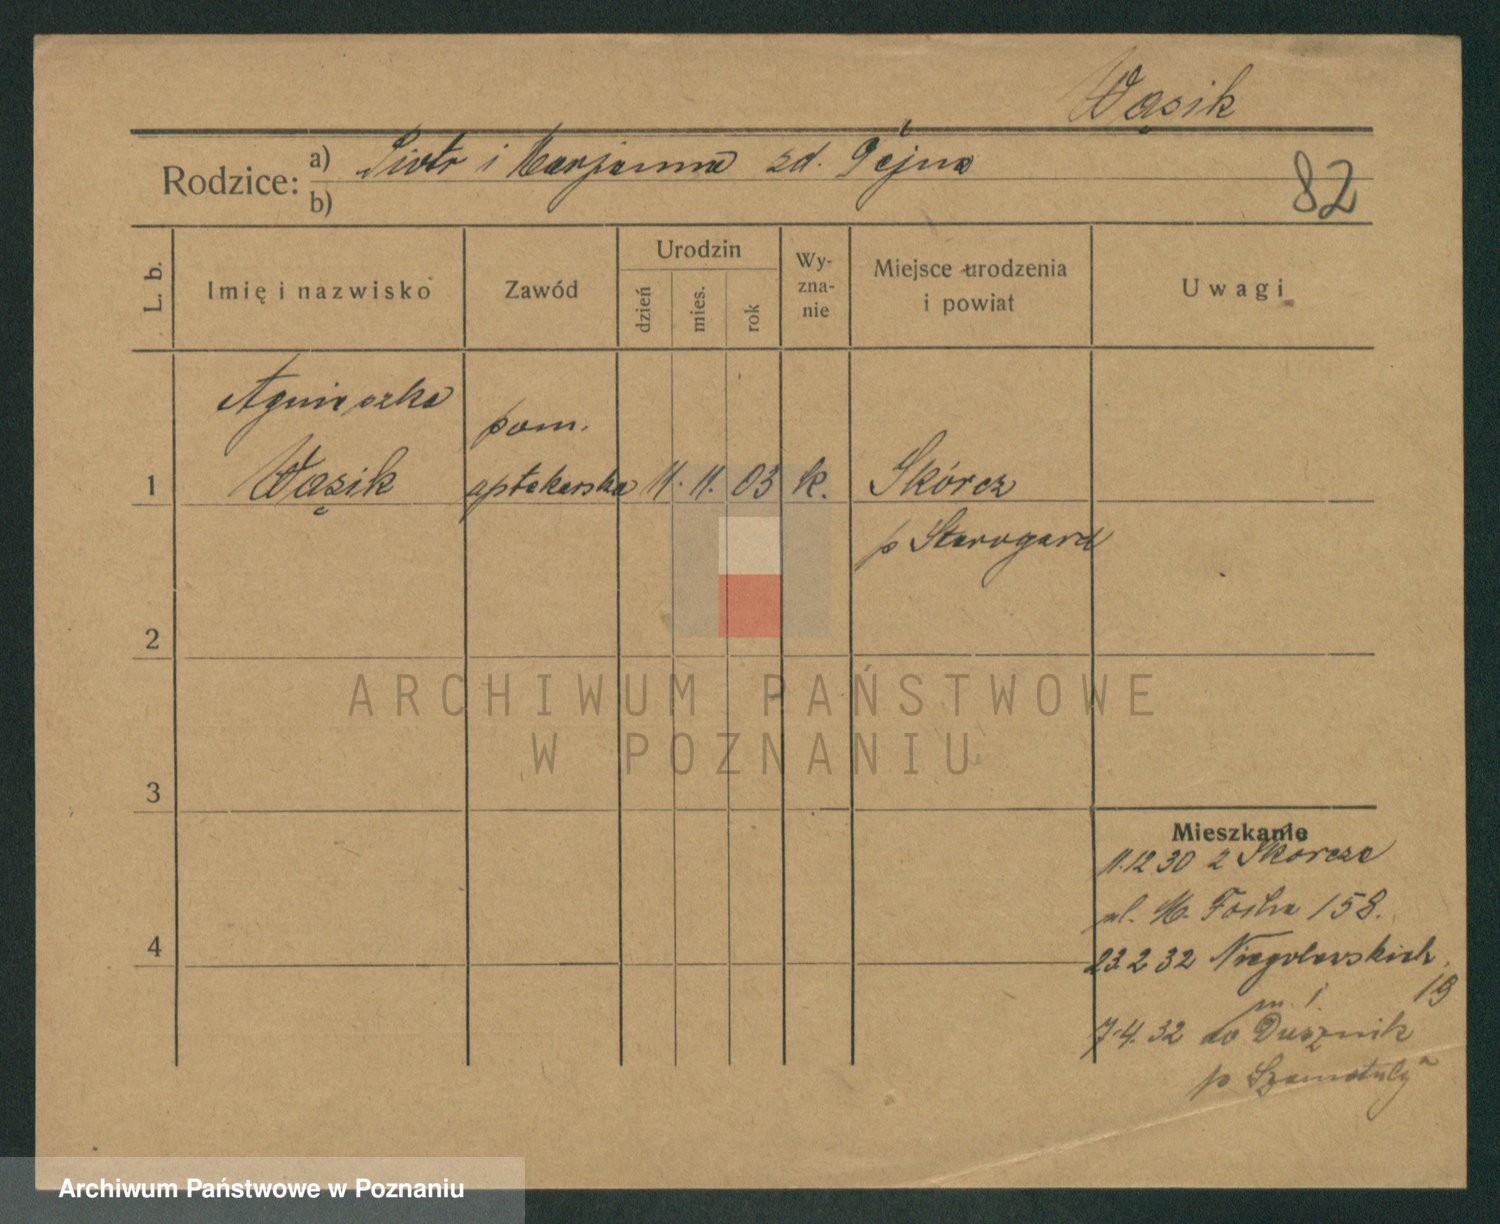 Wąsik
Rodzice: a) Piotr i Marjanna zd. Pejna
b)
82
L. b.
Imię i nazwisko
Zawód
Urodzin
dzień
mies.
rok
Wy-
zna-
nie
Miejsce urodzenia
i powiat
Uwagi
Agnieszka
pom.
1 Wąsik aptekarska 11. 11. 03 k. Skórcz
p Starogard
2
ARCHIWUM PAŃSTWOWE
W POZNANIU
3
Mieszkanie
11.12 30 z Skórcze
ul. M. Focha 158.
23.2 32 Niegolewskich
4
19
m. 1
7.4. 32 do Dusznik
p Szamotuły
Archiwum Państwowe w Poznaniu